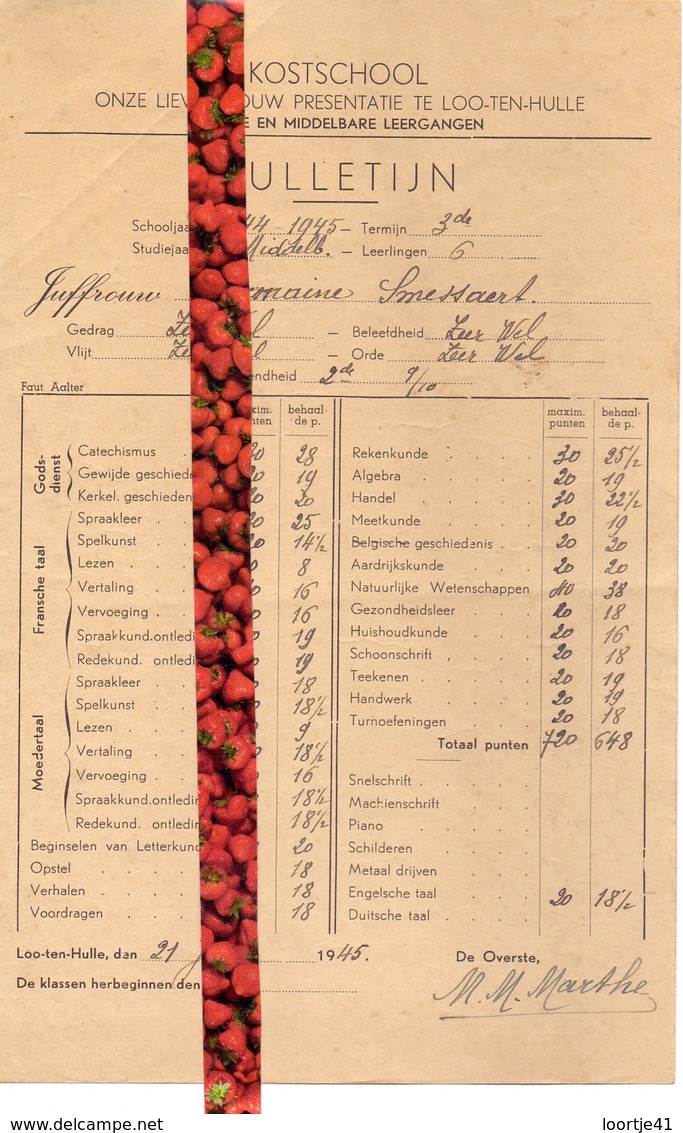 KOSTSCHOOL
ONZE LIEV OUW PRESENTATIE TE LOO-TEN-HULLE
E EN MIDDELBARE LEERGANGEN
ULLETIJN
Schooljaa 44-1945 – Termijn 3de
Studiejaa Middelb. – Leerlingen 6
Juffrouw maine Smessaert.
Gedrag Ze l – Beleefdheid Zeer Wel
Vlijt Ze l – Orde Zeer Wel
endheid 2de 9/10
Faut Aalter
xim. nten behaal-de p.
Gods-dienst
Catechismus 28
Gewijde geschiede 19
Kerkel. geschieden 20
Fransche taal
Spraakleer 25
Spelkunst 14 1/2
Lezen 8
Vertaling 16
Vervoeging 16
Spraakkund.ontledi 19
Redekund. ontledi 19
Moedertaal
Spraakleer 18
Spelkunst 18 1/2
Lezen 9
Vertaling 18 1/2
Vervoeging 16
Spraakkund.ontledin 18 1/2
Redekund. ontledin 18 1/2
Beginselen van Letterkund 20
Opstel 18
Verhalen 18
Voordragen 18
maxim. punten behaal-de p.
Rekenkunde 30 25 1/2
Algebra 20 19
Handel 30 22 1/2
Meetkunde 20 19
Belgische geschiedenis 20 20
Aardrijkskunde 20 20
Natuurlijke Wetenschappen 40 38
Gezondheidsleer 20 18
Huishoudkunde 20 16
Schoonschrift 20 18
Teekenen 20 19
Handwerk 20 19
Turnoefeningen 20 18
Totaal punten 720 648
Snelschrift
Machienschrift
Piano
Schilderen
Metaal drijven
Engelsche taal 20 18 1/2
Duitsche taal
Loo-ten-Hulle, den 21 j 1945.
De Overste,
De klassen herbeginnen den
M. M. Marthe
www.delcampe.net
loortje41